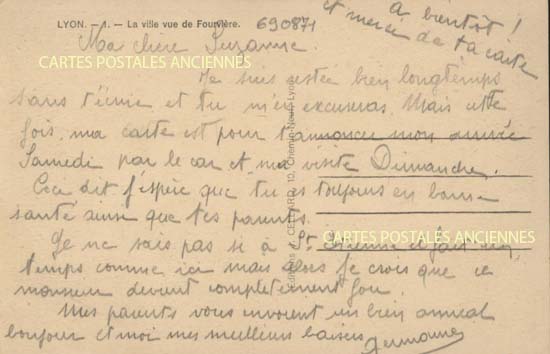 LYON. – 1. – La ville vue de Fourvière.
690871
à bientôt !
et merci de ta carte
Ma chère Suzanne
CARTES POSTALES ANCIENNES
Je suis restée bien longtemps
sans t'écrire et tu m'en excuseras. Mais cette
fois, ma carte est pour t'annoncer mon arrivée
Samedi par le car et ma visite Dimanche.
Ceci dit j'espère que tu es toujours en bonne
santé ainsi que tes parents.
CARTES POSTALES ANCIENNES
Je ne sais pas si à St Etienne il fait un
temps comme ici mais alors je crois que ce
monsieur devient complètement fou.
Mes parents vous envoient un bien amical
bonjour et moi mes meilleurs baisers
Germaine
10, Chemin-Neuf, Lyon